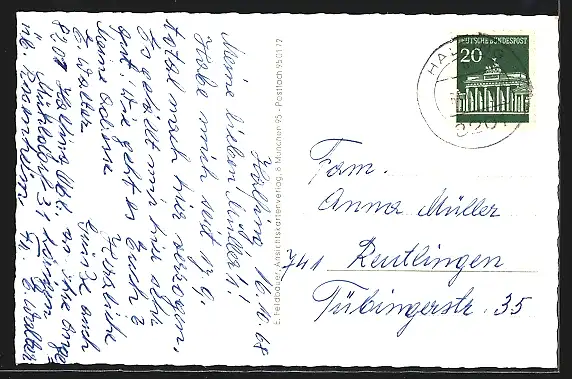 Halfing 16.10.68
Meine lieben Müller!
Habe mich seit 17.9.
total nach hier verzogen,
Es gefällt mir hier sehr
gut. Wie geht es Euch?
Herzliche
Grüße auch
E. Walter
Meine Adresse
8201 Halfing Obb.
DEUTSCHE BUNDESPOST
20
8201
E. Feldbauer, Ansichtskartenverlag, 8 München 95 - Postfach 95 01 72
Fam.
Anna Müller
741 Reutlingen
Tübingerstr. 35